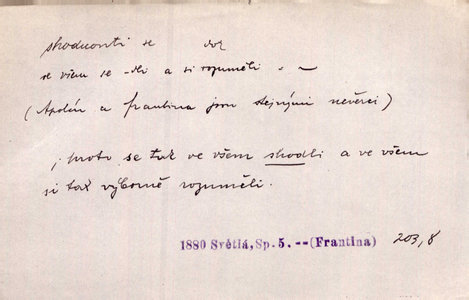 shodnouti se tak
se všem se -dli a si rozuměli - ~
(Apolén a frantina jsou stejnými nevěrci)
; proto se tak ve všem shodli a ve všem
si tak výborně rozuměli.
1880 Světlá, Sp. 5. -- (Frantina) 203, 8